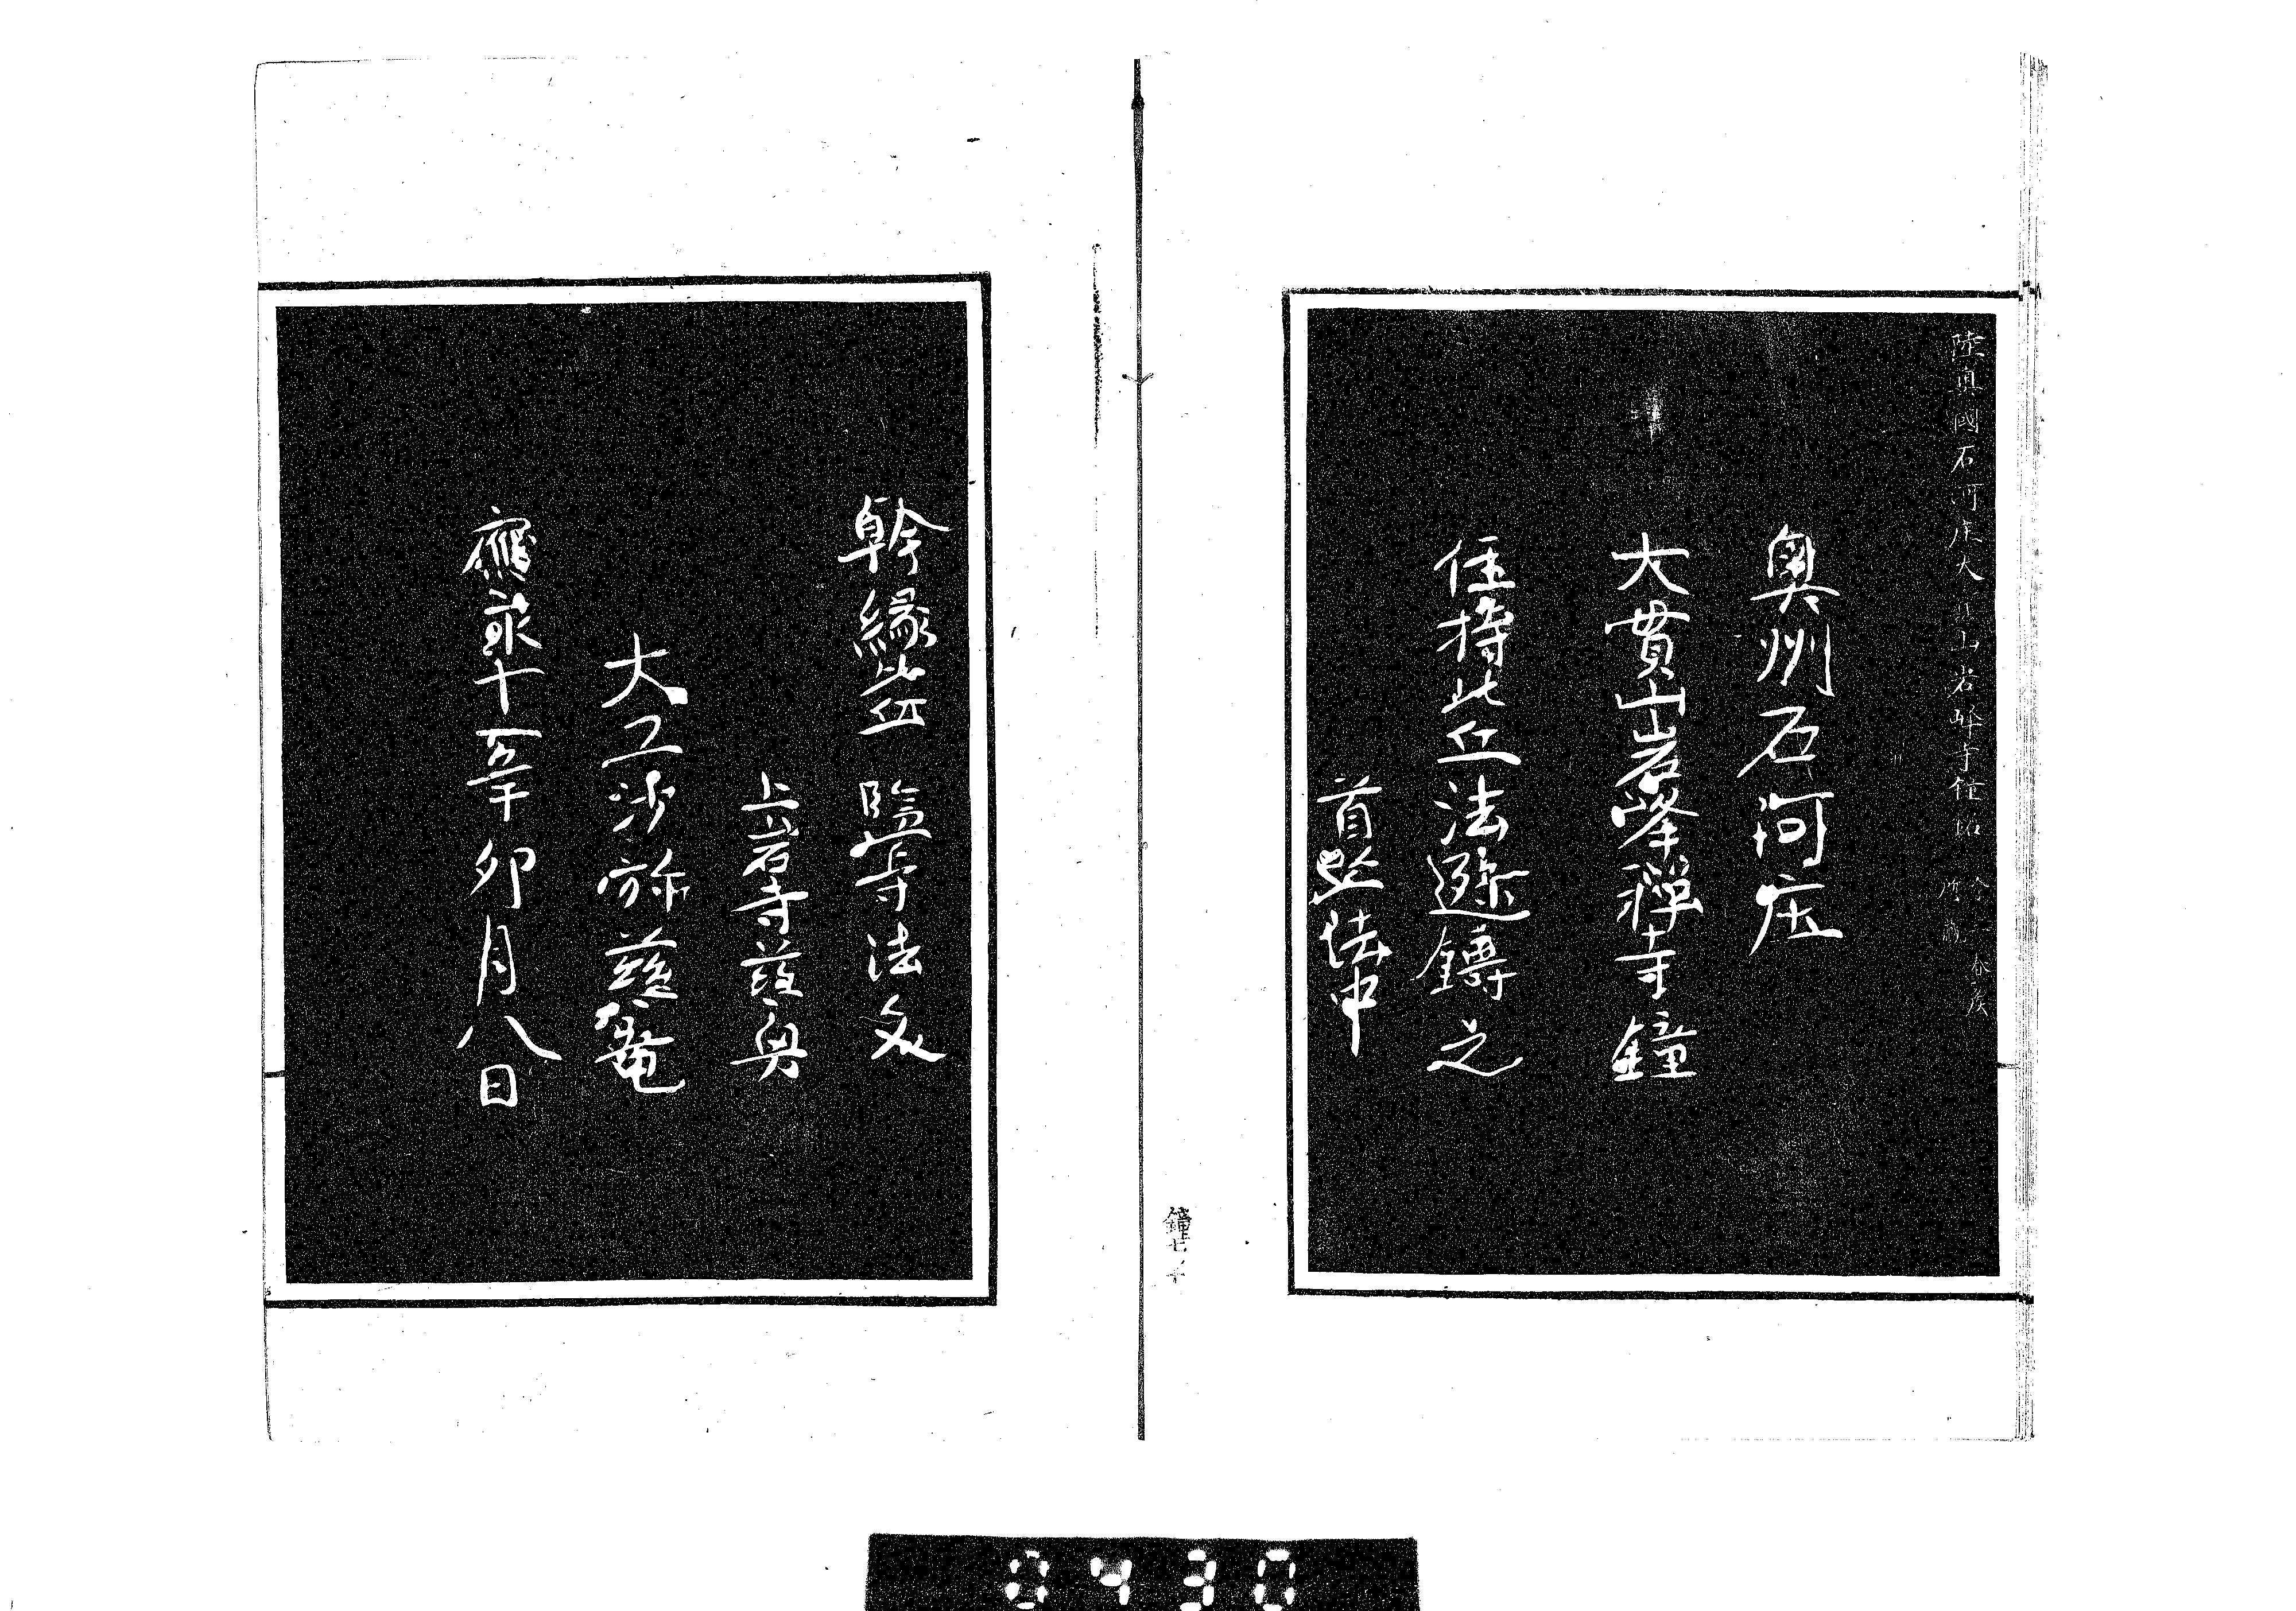 陸奥國石河庄大山岩峰寺鐘銘
奥州石河庄
大貫山岩峰禅寺鐘
住持比丘法遜鑄之
首座法中
鐘七
幹緣比丘 監寺法久
上岩寺慈奥
大工沙弥慈
應永十五年卯月八日
0430